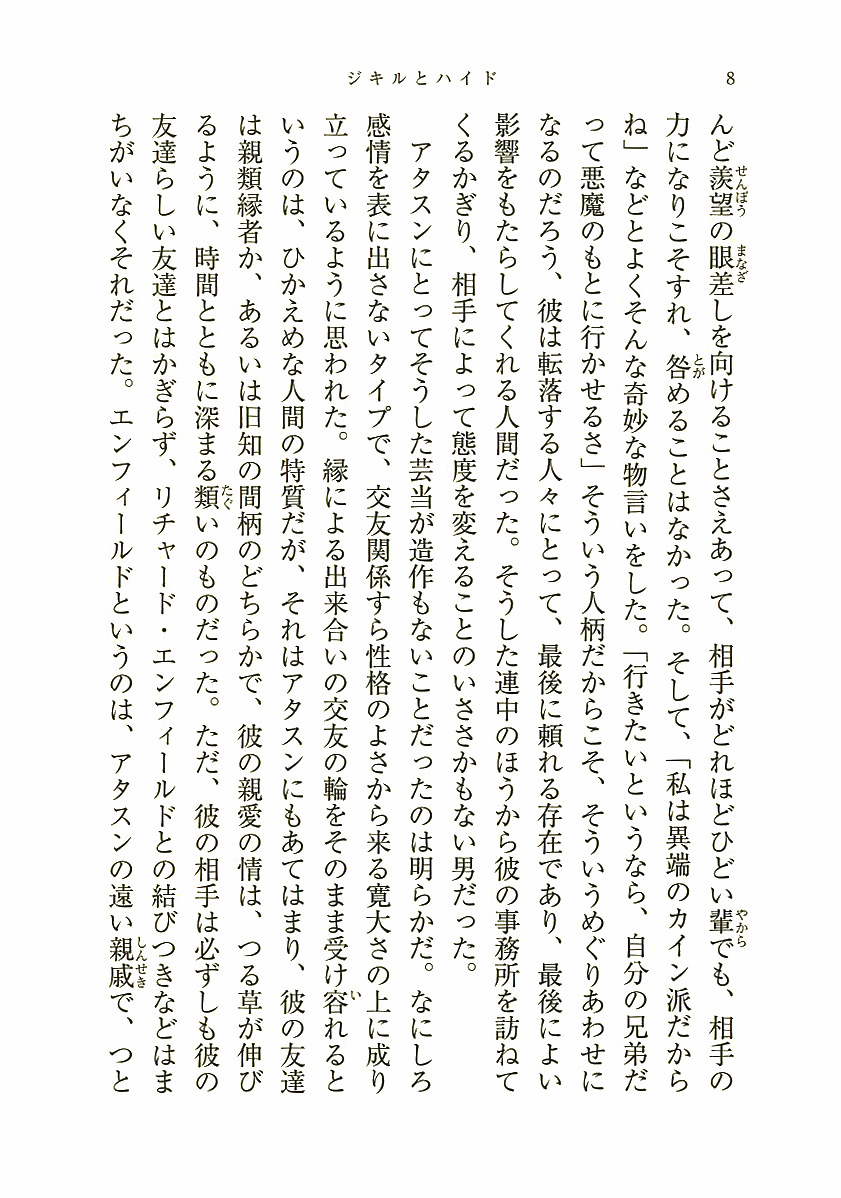 ジキルとハイド
8
んど羨望の眼差しを向けることさえあって、相手がどれほどひどい輩でも、相手の
力になりこそすれ、咎めることはなかった。そして、「私は異端のカイン派だから
ね」などとよくそんな奇妙な物言いをした。「行きたいというなら、自分の兄弟だ
って悪魔のもとに行かせるさ」そういう人柄だからこそ、そういうめぐりあわせに
なるのだろう、彼は転落する人々にとって、最後に頼れる存在であり、最後によい
影響をもたらしてくれる人間だった。そうした連中のほうから彼の事務所を訪ねて
くるかぎり、相手によって態度を変えることのいささかもない男だった。
アタスンにとってそうした芸当が造作もないことだったのは明らかだ。なにしろ
感情を表に出さないタイプで、交友関係すら性格のよさから来る寛大さの上に成り
立っているように思われた。縁による出来合いの交友の輪をそのまま受け容れると
いうのは、ひかえめな人間の特質だが、それはアタスンにもあてはまり、彼の友達
は親類縁者か、あるいは旧知の間柄のどちらかで、彼の親愛の情は、つる草が伸び
るように、時間とともに深まる類いのものだった。ただ、彼の相手は必ずしも彼の
友達らしい友達とはかぎらず、リチャード・エンフィールドとの結びつきなどはま
ちがいなくそれだった。エンフィールドというのは、アタスンの遠い親戚で、つと
せんぼう
まなざ
やから
とが
い
たぐ
しんせき